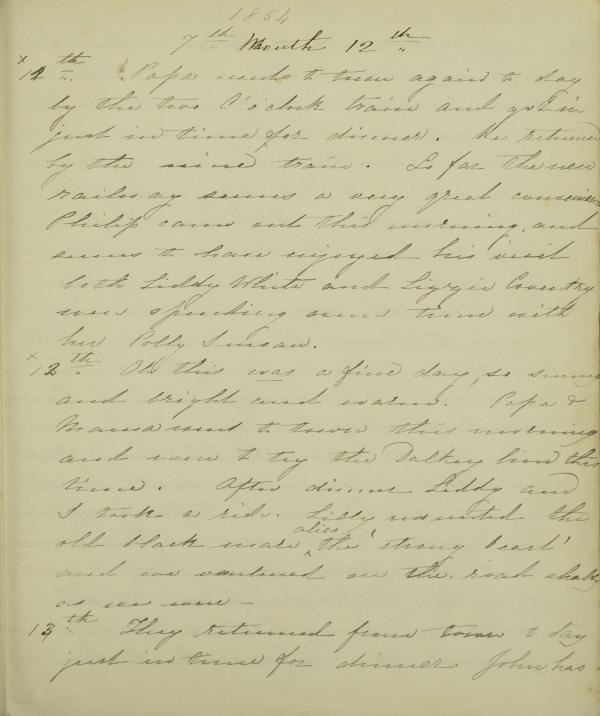 1854
7th Month 12th
x 12th. Papa went to town again to day
by the two O'clock train and got in
just in time for dinner. He returned
by the nine train. So far the new
railway seems a very great convenience
Philip came out this morning, and
seems to have enjoyed his visit
both Liddy White and Lizzie Coventry
were spending some time with
her Polly
x 12th. Oh this was a fine day, so sunny
and bright and warm. Papa &
Mama went to town this morning
and were to try the Dalkey line this
time. After dinner Liddy and
I took a ride. Lizzy mounted the
old black mare alias the 'strong beast'
and we ventured on the road shabby
as we were -
13th They returned from town to day
just in time for dinner John has